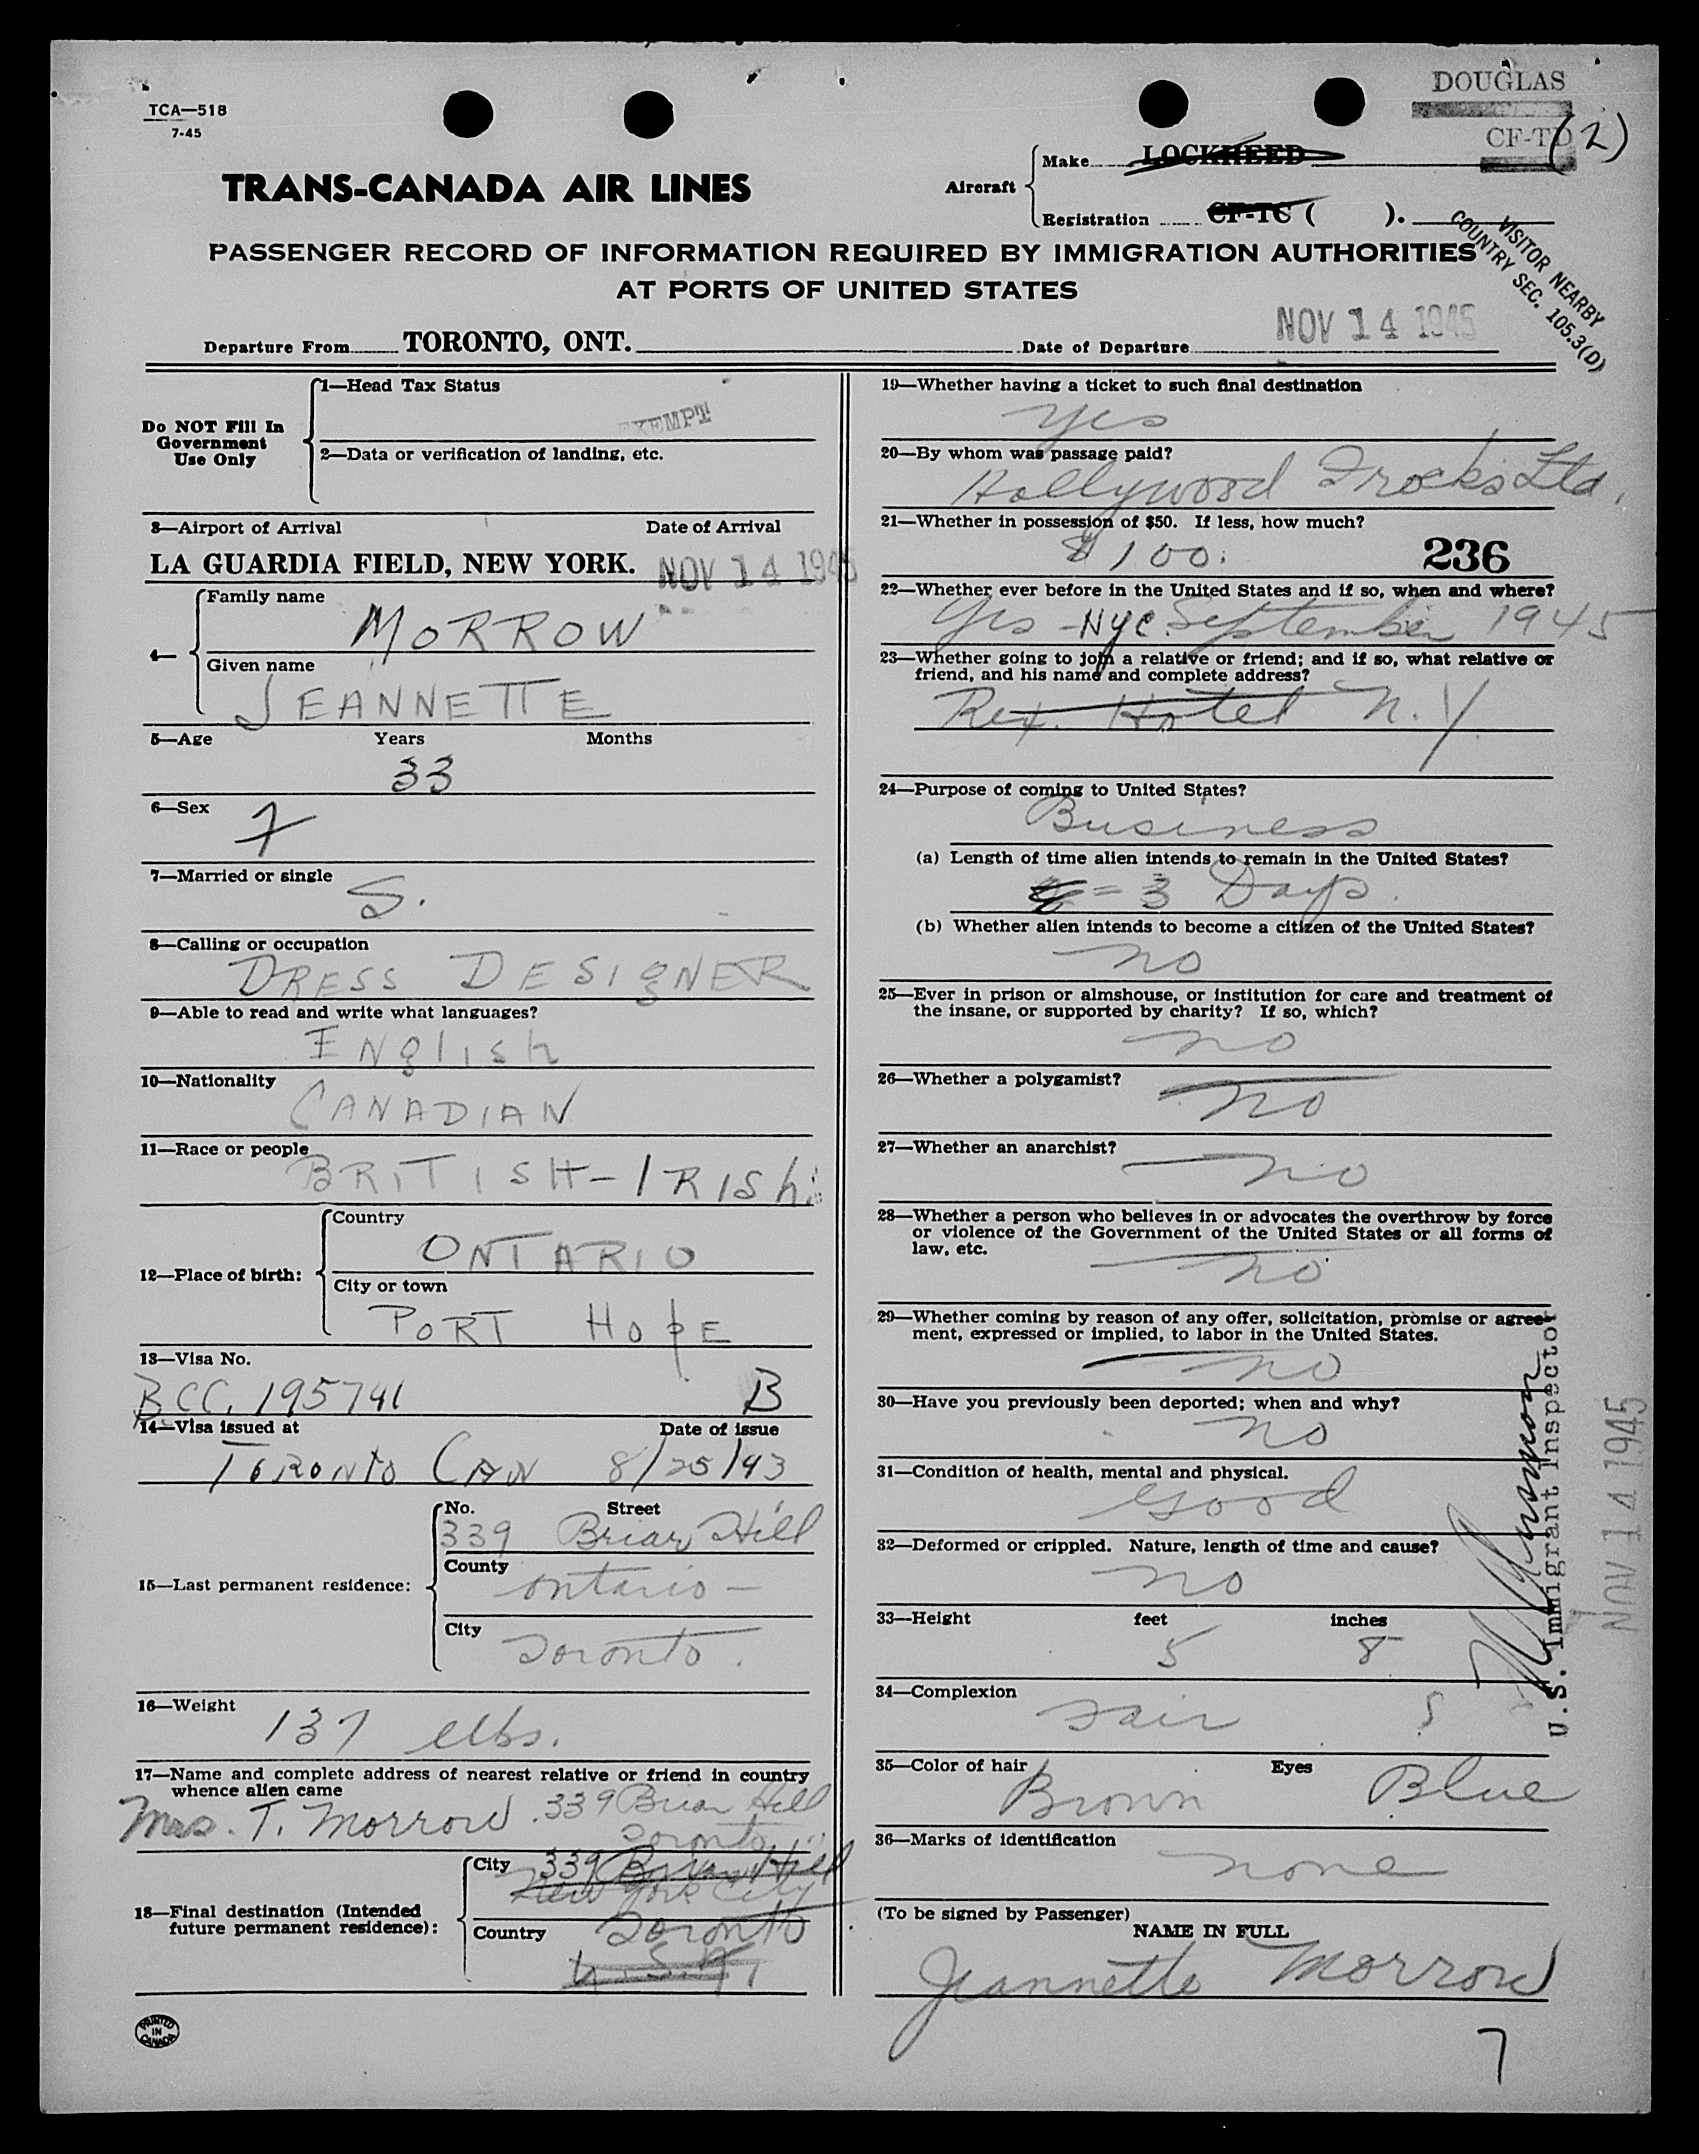 TCA—518
7-45
DOUGLAS
CF-TD (2)
TRANS-CANADA AIR LINES
Aircraft
Make LOCKHEED
Registration CF-TC ( ).
VISITOR NEARBY
COUNTRY SEC. 105.3(D)
PASSENGER RECORD OF INFORMATION REQUIRED BY IMMIGRATION AUTHORITIES
AT PORTS OF UNITED STATES
Departure From TORONTO, ONT. Date of Departure NOV 14 1945
Do NOT Fill In
Government
Use Only
1—Head Tax Status
EXEMPT
2—Data or verification of landing, etc.
3—Airport of Arrival Date of Arrival
LA GUARDIA FIELD, NEW YORK. NOV 14 1945
4—
Family name
MORROW
Given name
JEANNETTE
5—Age Years Months
33
6—Sex
F
7—Married or single
S.
8—Calling or occupation
DRESS DESIGNER
9—Able to read and write what languages?
ENglish
10—Nationality
CANADIAN
11—Race or people
BRITISH-IRISh
12—Place of birth:
Country
ONTARIO
City or town
PORT HOPE
13—Visa No.
BCC. 195741 B
14—Visa issued at Date of issue
TORONTO CAN 8/25/43
15—Last permanent residence:
No. Street
339 Briar Hill
County
ontario -
City
Toronto.
16—Weight
137 lbs.
17—Name and complete address of nearest relative or friend in country
whence alien came
Mrs. T. Morrow. 339 Briar Hill
Toronto
18—Final destination (Intended
future permanent residence):
City 339 Briar Hill
New York City
Country Toronto
U.S.A.
PRINTED
IN
CANADA
19—Whether having a ticket to such final destination
yes
20—By whom was passage paid?
Hollywood Frocks Ltd.
21—Whether in possession of $50. If less, how much?
$100. 236
22—Whether ever before in the United States and if so, when and where?
Yes - NYC. September 1945
23—Whether going to join a relative or friend; and if so, what relative or
friend, and his name and complete address?
Rex. Hotel N.Y
24—Purpose of coming to United States?
Business
(a) Length of time alien intends to remain in the United States?
= 3 Days.
(b) Whether alien intends to become a citizen of the United States?
no
25—Ever in prison or almshouse, or institution for care and treatment of
the insane, or supported by charity? If so, which?
no
26—Whether a polygamist?
no
27—Whether an anarchist?
no
28—Whether a person who believes in or advocates the overthrow by force
or violence of the Government of the United States or all forms of
law, etc.
no
29—Whether coming by reason of any offer, solicitation, promise or agree-
ment, expressed or implied, to labor in the United States.
no
30—Have you previously been deported; when and why?
no
31—Condition of health, mental and physical.
Good
32—Deformed or crippled. Nature, length of time and cause?
no
33—Height feet inches
5 8
34—Complexion
Fair
35—Color of hair Eyes
Brown Blue
36—Marks of identification
none
(To be signed by Passenger)
NAME IN FULL
Jeannette Morrow
7
U.S. Immigrant Inspector
NOV 14 1945